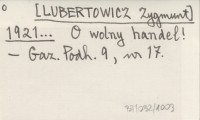 [LUBERTOWICZ Zygmunt]
1921... O wolny handel!
— Gaz. Podh. 9, nr 17.